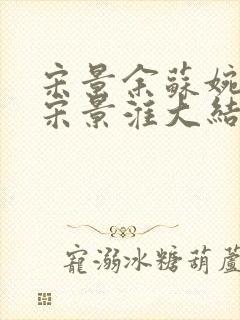 宋景余蘇婉
宋景淮大結
寵溺冰糖葫蘆